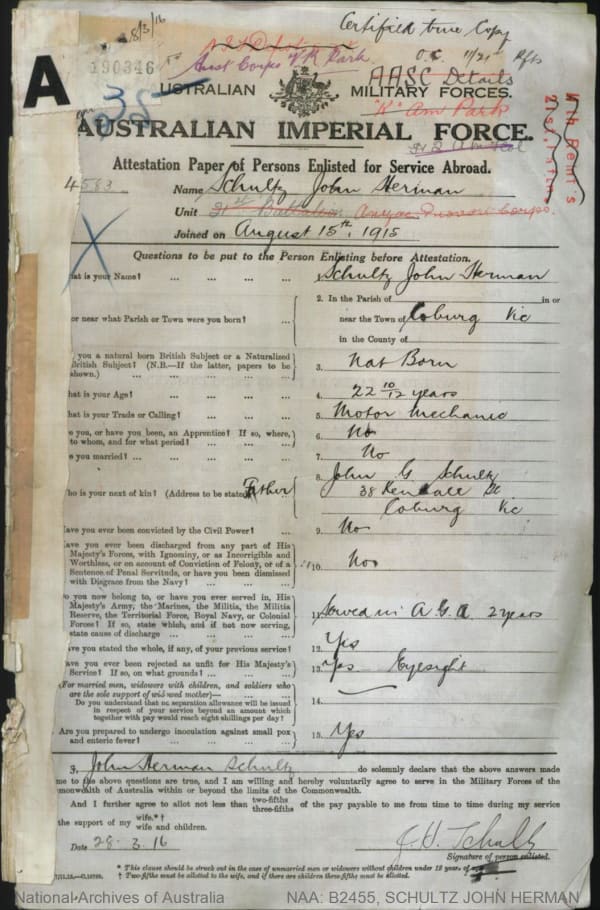 Certified true Copy
8/3/16
190346
A
Aust Corps Park
O.C. 11/21st Rfts
AASC Details
USTRALIAN MILITARY FORCES.
"K" Am Park
AUSTRALIAN IMPERIAL FORCE.
Attestation Paper of Persons Enlisted for Service Abroad.
4583
Name Schultz John Herman
Unit 21st Battalion Anzac Provost Corps.
Joined on August 15th, 1915
Questions to be put to the Person Enlisting before Attestation.
hat is your Name? ... ... ... ... Schultz John Herman
2. In the Parish of in or
or near what Parish or Town were you born? ... near the Town of Coburg Vic
in the County of
you a natural born British Subject or a Naturalized
British Subject? (N.B.—If the latter, papers to be
shown.) ... ... ... ... ... 3. Nat Born
hat is your Age? ... ... ... ... 4. 22 10/12 years
hat is your Trade or Calling? ... ... ... 5. Motor Mechanic
e you, or have you been, an Apprentice? If so, where,
to whom, and for what period? ... ... ... 6. No
e you married? ... ... ... ... 7. No
8. John G Schultz
ho is your next of kin? (Address to be stated) Father 38 Kendall St
Coburg Vic
ave you ever been convicted by the Civil Power? ... 9. No
ave you ever been discharged from any part of His
Majesty's Forces, with Ignominy, or as Incorrigible and
Worthless, or on account of Conviction of Felony, or of a
Sentence of Penal Servitude, or have you been dismissed
with Disgrace from the Navy? ... ... ... 10. No
Do you now belong to, or have you ever served in, His
Majesty's Army, the Marines, the Militia, the Militia
Reserve, the Territorial Force, Royal Navy, or Colonial
Forces? If so, state which, and if not now serving,
state cause of discharge ... ... ... ... 11. Served in A.G.A. 2 years
ave you stated the whole, if any, of your previous service? 12. Yes
ave you ever been rejected as unfit for His Majesty's
Service? If so, on what grounds? ... ... ... 13. Yes Eyesight
(For married men, widowers with children, and soldiers who
are the sole support of widowed mother)—
Do you understand that no separation allowance will be issued
in respect of your service beyond an amount which
together with pay would reach eight shillings per day? 14.
Are you prepared to undergo inoculation against small pox
and enteric fever? ... ... ... ... 15. Yes
I, John Herman Schultz do solemnly declare that the above answers made
me to the above questions are true, and I am willing and hereby voluntarily agree to serve in the Military Forces of the
monwealth of Australia within or beyond the limits of the Commonwealth.
And I further agree to allot not less than two-fifths three-fifths of the pay payable to me from time to time during my service
the support of my wife.*† wife and children.
Date 28.3.16
J. H. Schultz
Signature of person enlisted.
* This clause should be struck out in the case of unmarried men or widowers without children under 18 years of
† Two-fifths must be allotted to the wife, and if there are children three-fifths must be allotted.
National Archives of Australia
NAA: B2455, SCHULTZ JOHN HERMAN